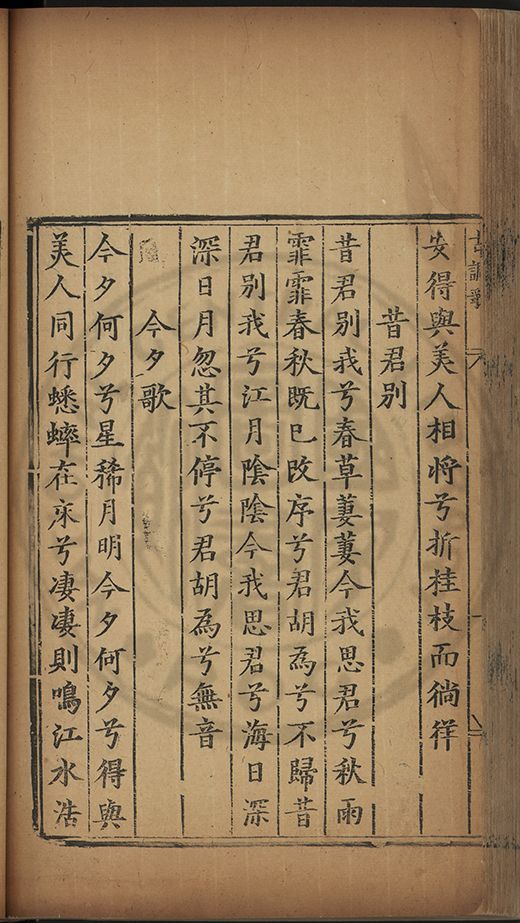 安得與美人相將兮折桂枝而徜徉
昔君別
昔君別我兮春草萋萋今我思君兮秋雨
霏霏春秋既已改序兮君胡為兮不歸昔
君別我兮江月陰陰今我思君兮海日深
深日月忽其不停兮君胡為兮無音
今夕歌
今夕何夕兮星稀月明今夕何夕兮得與
美人同行蟋蟀在床兮淒淒則鳴江水浩